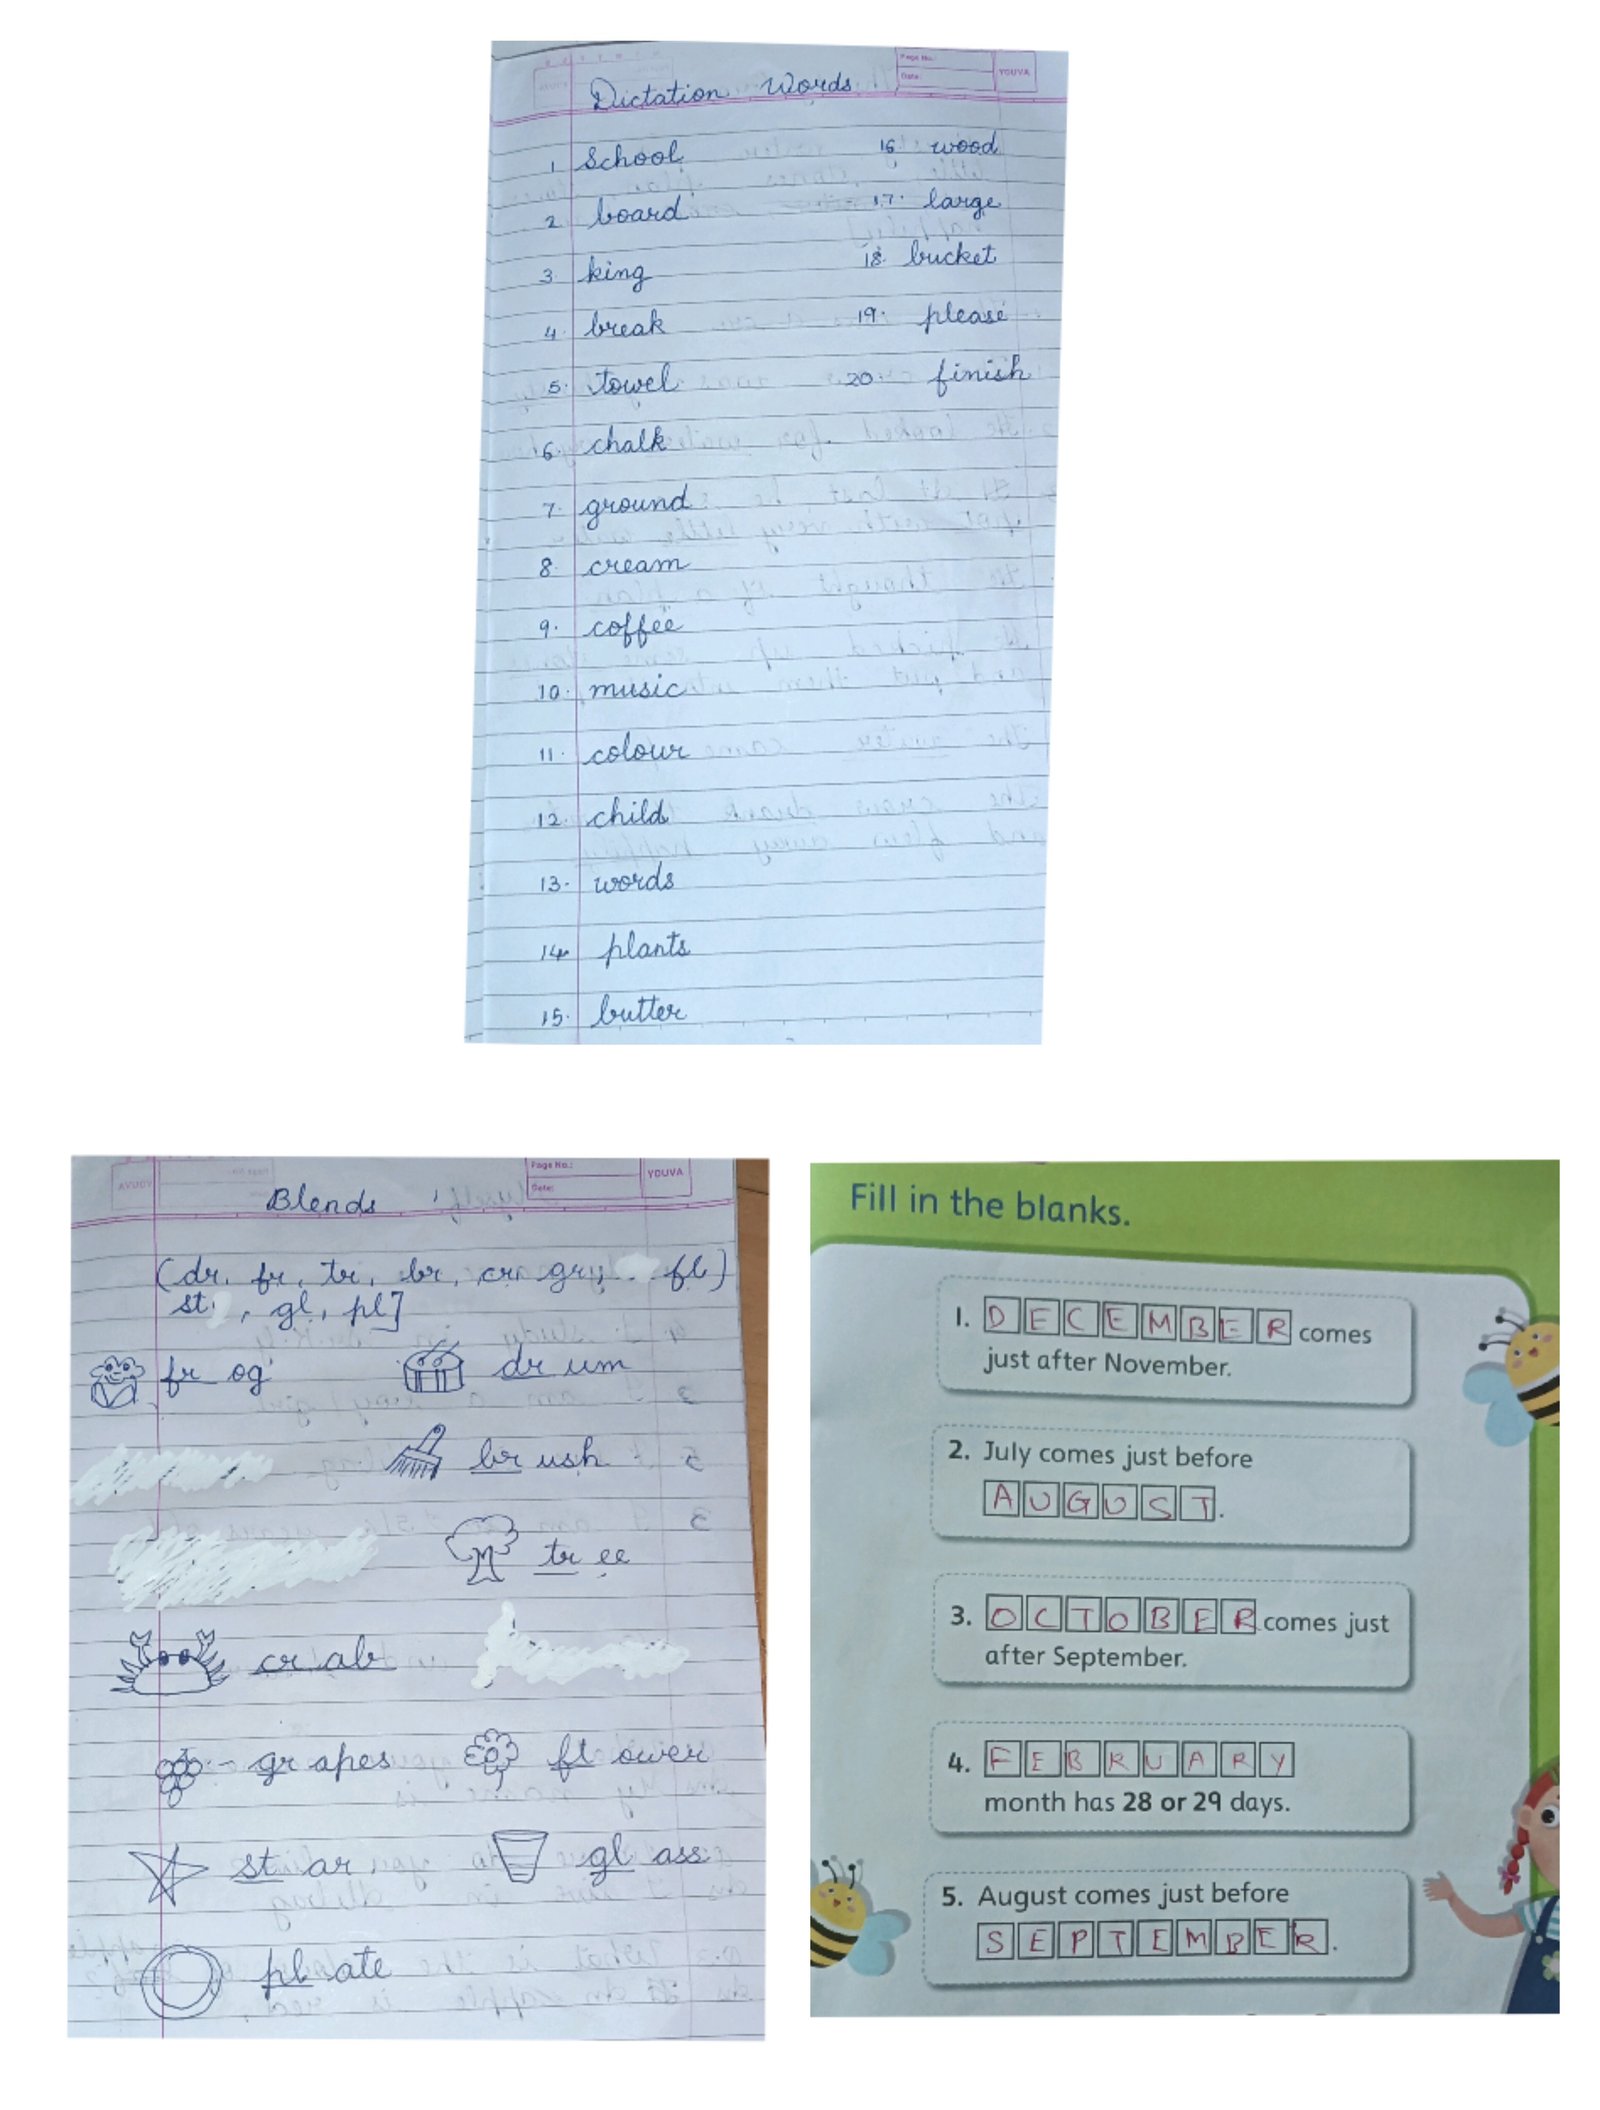 Page No.:
Date:
YOUVA
Dictation Words
1 School
2 board
3. king
4. break
5. towel
6. chalk
7. ground
8. cream
9. coffee
10. music
11. colour
12. child
13. words
14. plants
15. butter
16. wood
17. large
18. bucket
19. please
20. finish
Page No.:
Date:
YOUVA
Blends
(dr, fr, tr, br, cr, gr, fl)
st, gl, pl]
fr og
dr um
br ush
tr ee
cr ab
gr apes
fl ower
st ar
gl ass
pl ate
Fill in the blanks.
1. DECEMBER comes
just after November.
2. July comes just before
AUGUST.
3. OCTOBER comes just
after September.
4. FEBRUARY
month has 28 or 29 days.
5. August comes just before
SEPTEMBER.